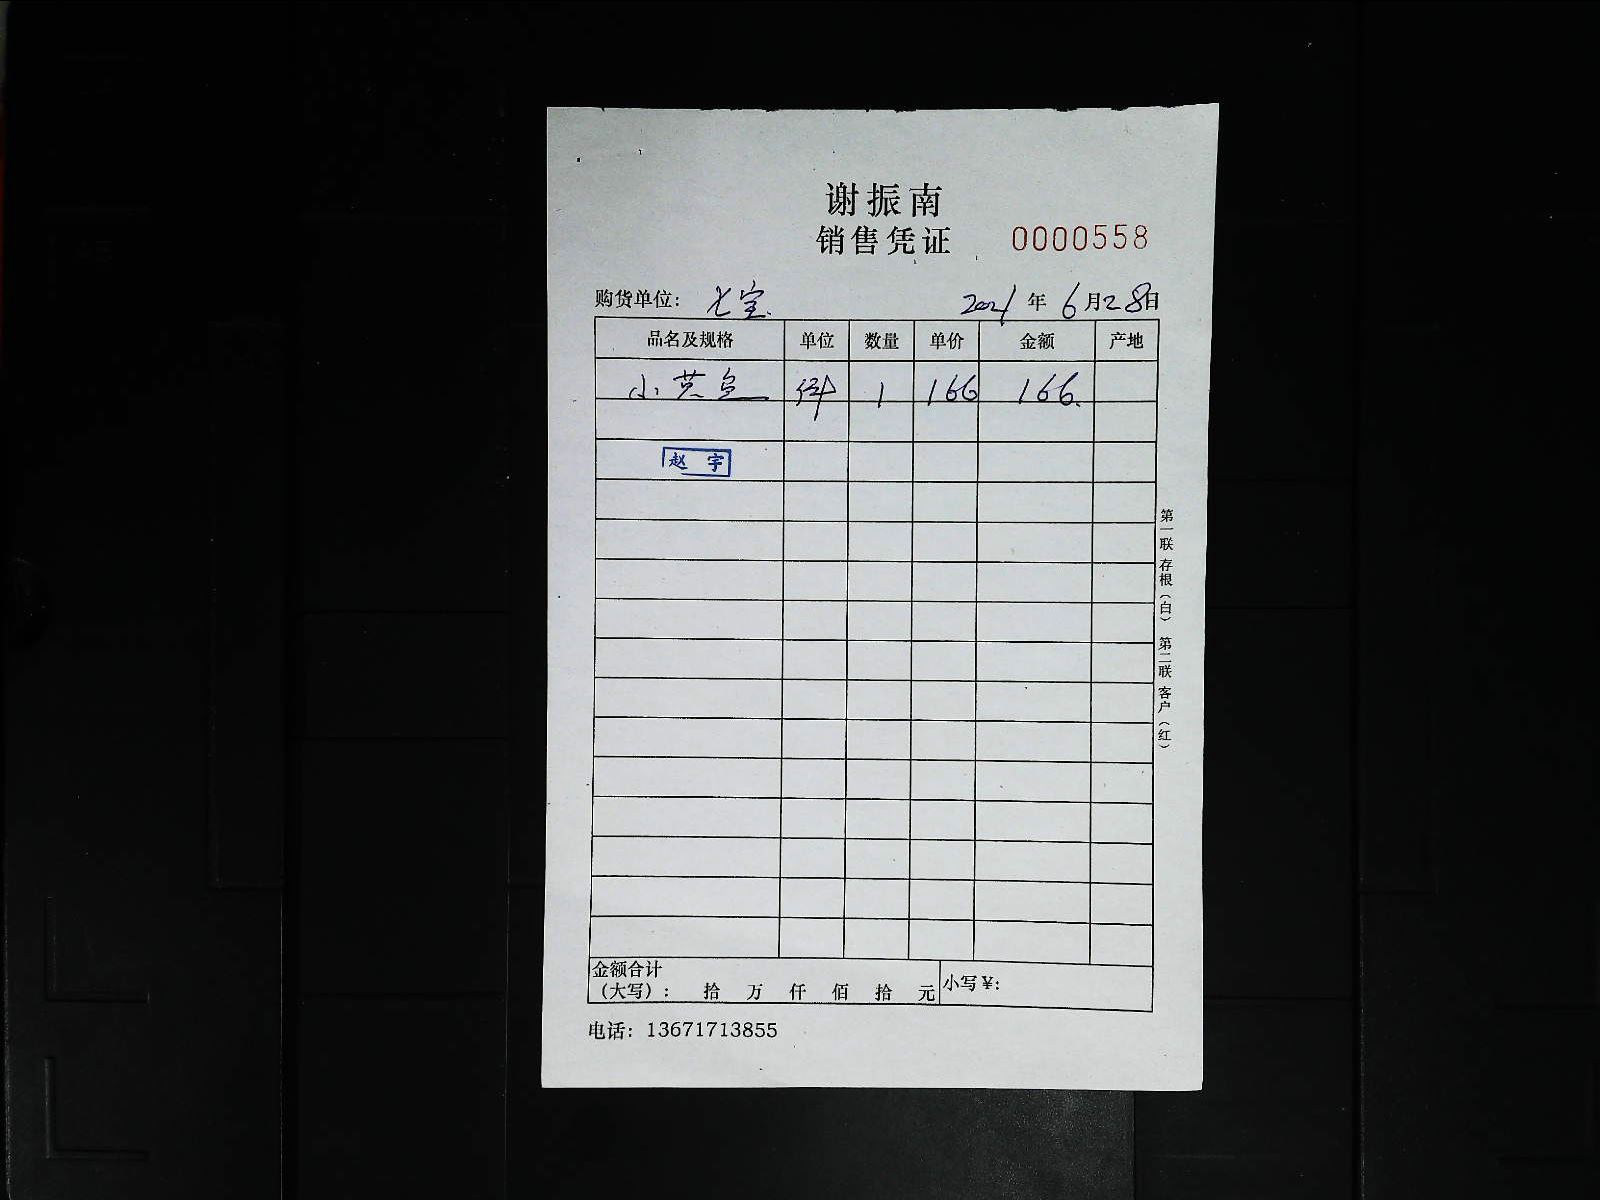 谢振南
销售凭证 0000558
购货单位: 七宝. 2021年6月28日
品名及规格 单位 数量 单价 金额 产地
小黄鱼 件 1 166 166.
赵 宇
第一联 存根(白) 第二联 客户(红)
金额合计
(大写): 拾 万 仟 佰 拾 元 小写¥:
电话: 13671713855